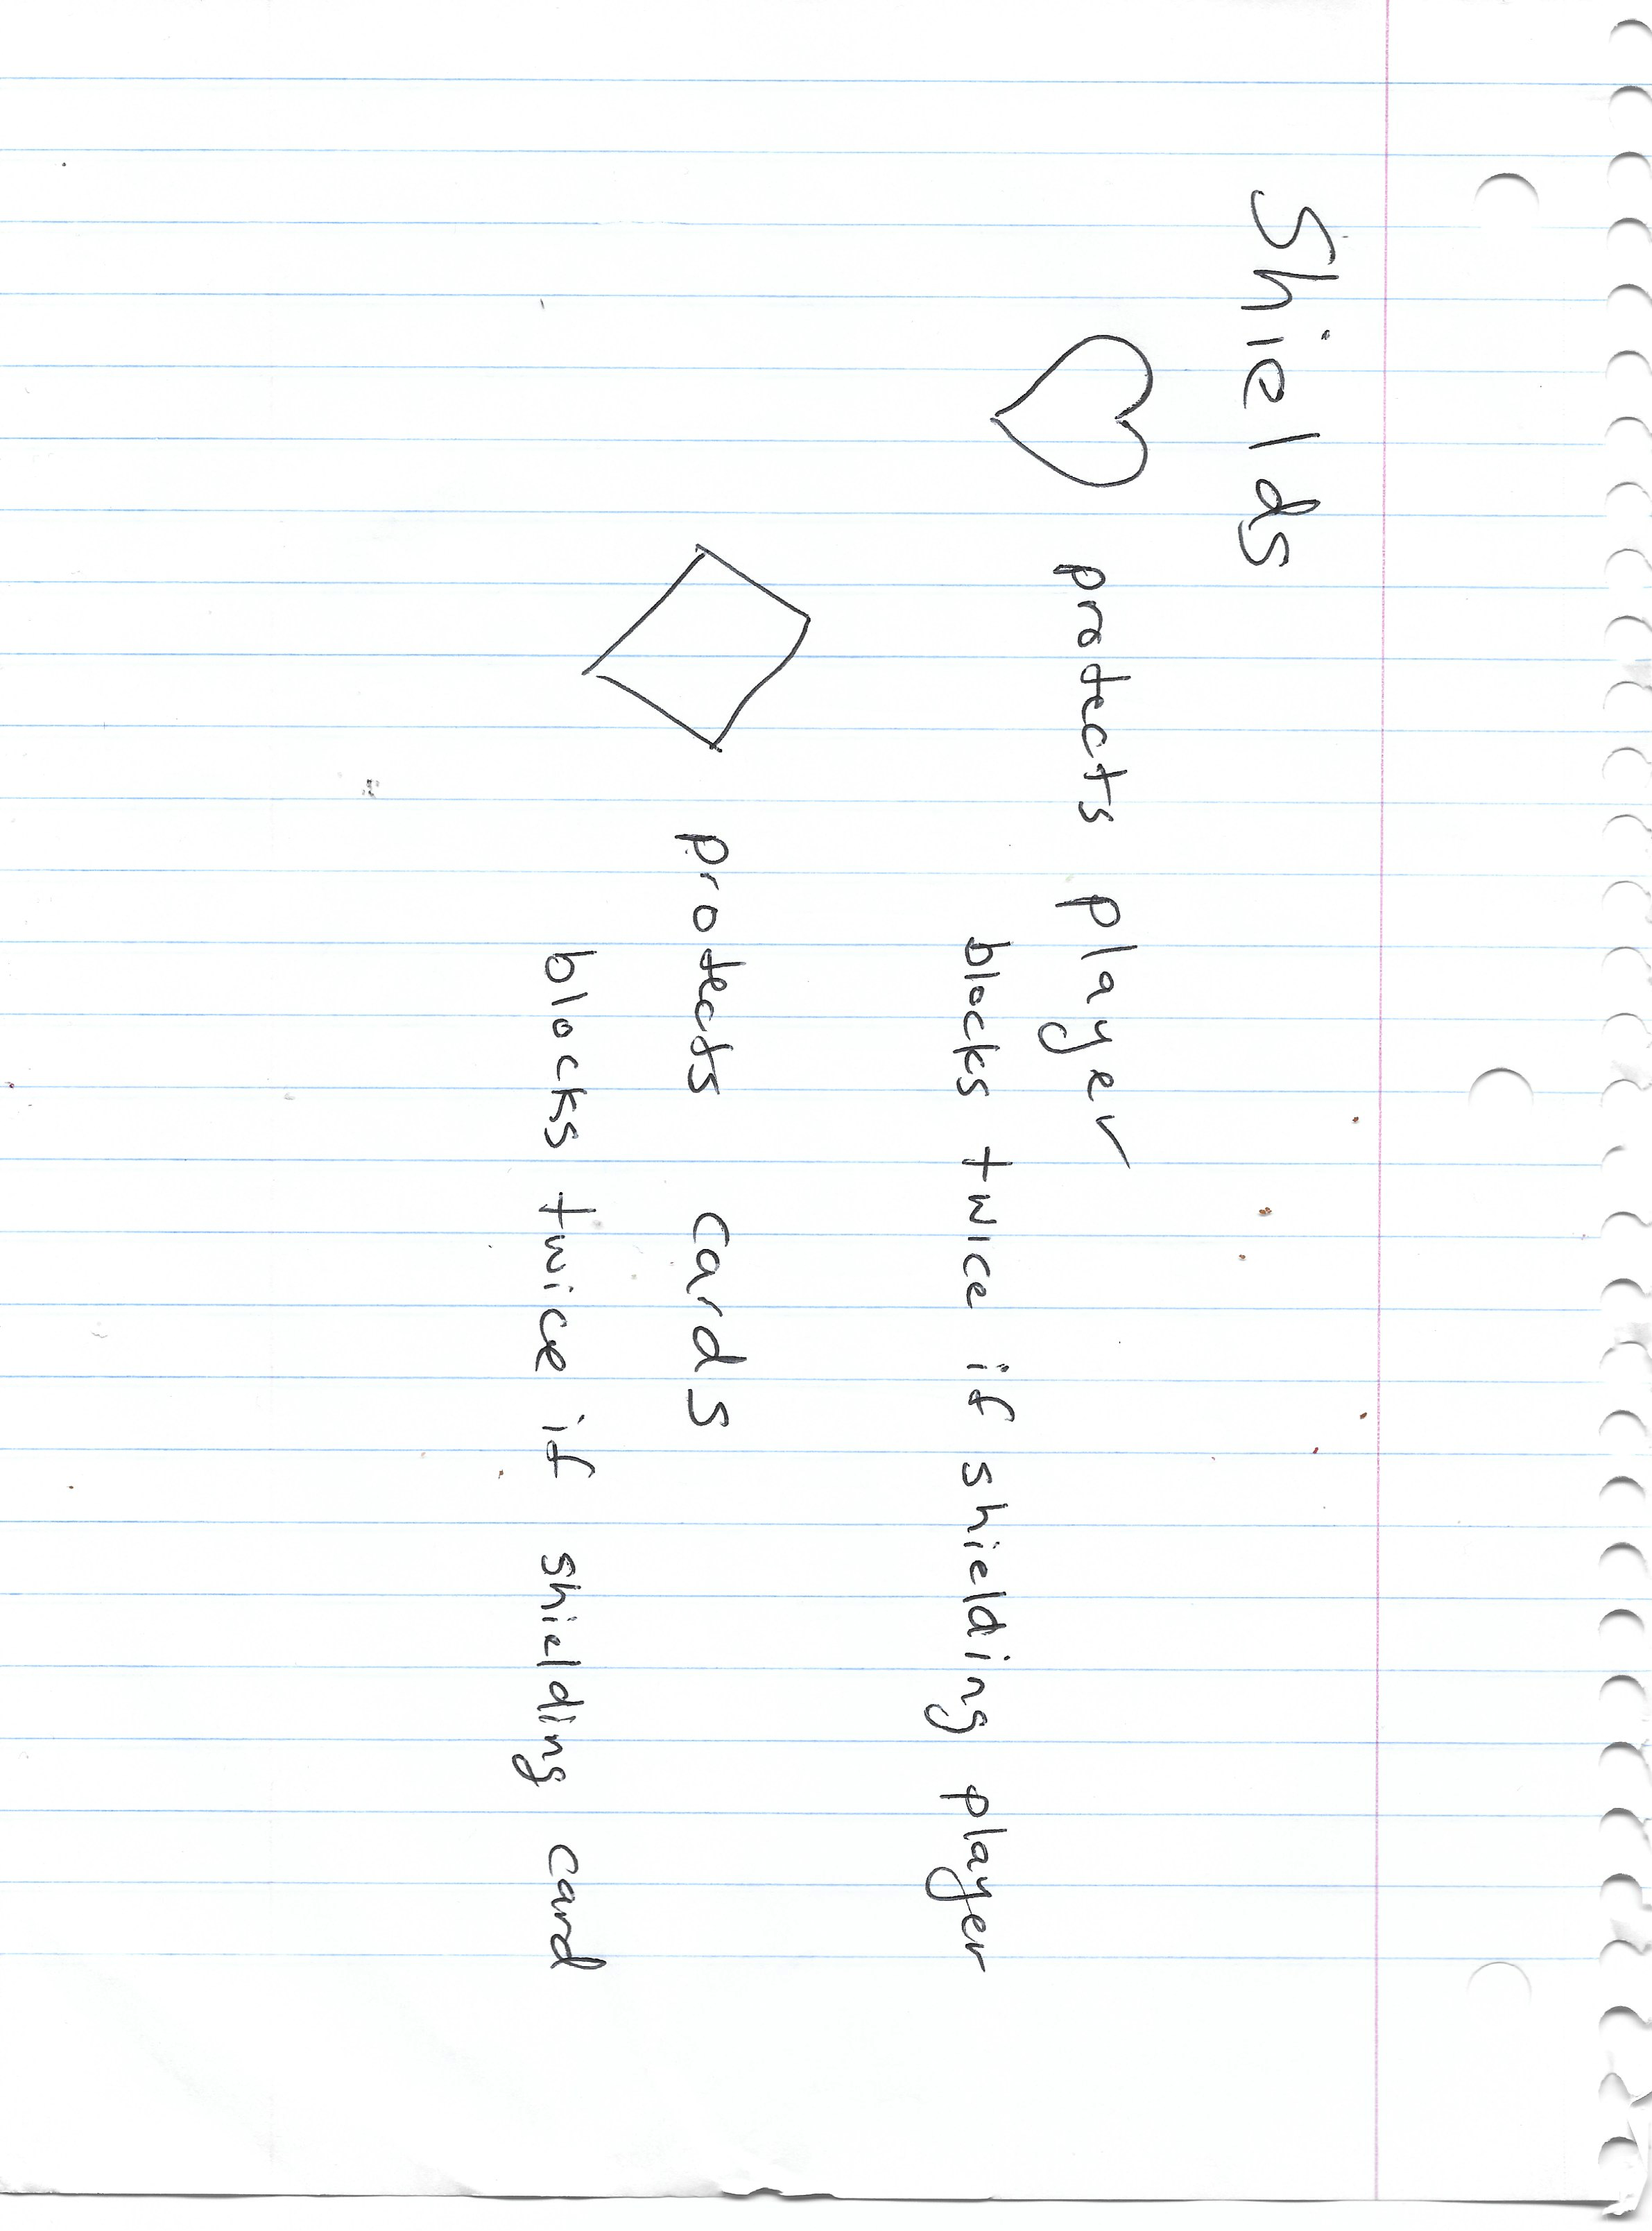 Shields
protects player
blocks twice if shielding player
protects cards
blocks twice if shielding card